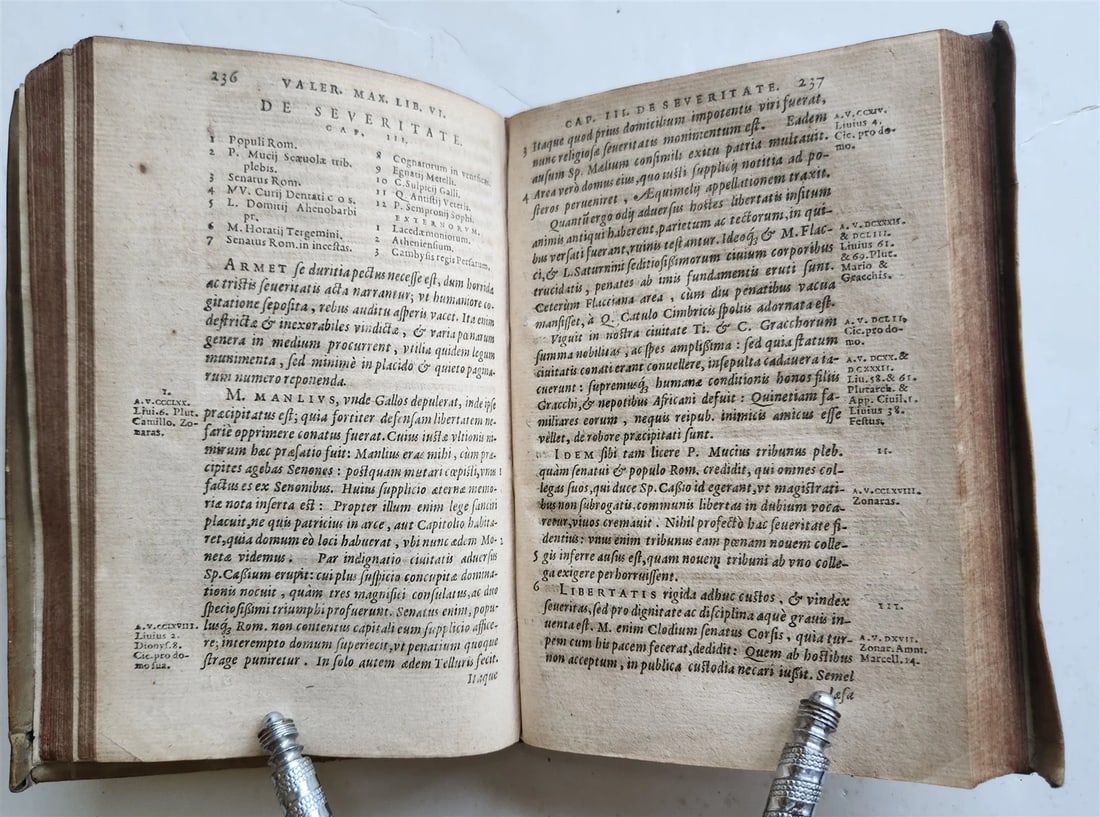 236
VALER. MAX. LIB. VI.
DE SEVERITATE.
CAP. III.
1 Populi Rom.
2 P. Mucij Scæuolæ trib.
plebis.
3 Senatus Rom.
4 MV. Curij Dentati cos.
5 L. Domitij Ahenobarbi
pr.
6 M. Horatij Tergemini.
7 Senatus Rom. in incestas.
8 Cognatorum in veneficas.
9 Egnatij Metelli.
10 C. Sulpicij Galli.
11 Q. Antistij Veteris.
12 P. Sempronij Sophi.
EXTERNORVM.
1 Lacedæmoniorum.
2 Atheniensium.
3 Cambysis regis Persarum.
ARMET se duritia pectus necesse est, dum horrida
ac tristis seueritatis acta narrantur; vt humaniore co-
gitatione seposita, rebus auditu asperis vacet. Ita enim
destrictæ & inexorabiles vindictæ, & varia pœnarum
genera in medium procurrent, vtilia quidem legum
munimenta, sed minimè in placido & quieto pagina-
rum numero reponenda.
M. MANLIVS, vnde Gallos depulerat, inde ipse
præcipitatus est; quia fortiter defensam libertatem ne-
fariè opprimere conatus fuerat. Cuius iustæ vltionis ni-
mirum hæc præfatio fuit: Manlius eras mihi, cùm præ-
cipites agebas Senones: postquam mutari cœpisti, vnus 1
factus es ex Senonibus. Huius supplicio æternæ memo-
riæ nota inserta est: Propter illum enim lege sanciri
placuit, ne quis patricius in arce, aut Capitolio habita-
ret, quia domum eò loci habuerat, vbi nunc ædem Mo- 2
netæ videmus. Par indignatio ciuitatis aduersus
Sp. Cassium erupit: cui plus suspicio concupitæ domina-
tionis nocuit, quàm tres magnifici consulatus, ac duo
speciosissimi triumphi profuerunt. Senatus enim, popu-
lusq́; Rom. non contentus capitali eum supplicio affice-
re; interempto domum superiecit, vt penatium quoque
strage puniretur. In solo autem ædem Telluris fecit.
Itaque
I.
A.V.CCCLXX.
Liui.6. Plut.
Camillo. Zo-
naras.
A.V.CCLXVIII.
Liuius 2.
Dionys.8.
Cic.pro do-
mo sua.
CAP. III. DE SEVERITATE. 237
3 Itaque quod prius domicilium impotentis viri fuerat,
nunc religiosæ seueritatis monimentum est. Eadem
ausum Sp. Mælium consimili exitu patria multauit.
4 Area verò domus eius, quo iusti supplicij notitia ad po-
steros perueniret, Æquimelij appellationem traxit.
Quantũ ergo odij aduersus hostes libertatis insitum
animis antiqui haberent, parietum ac tectorum, in qui-
bus versati fuerant, ruinis testantur. Ideoq́; & M. Flac-
ci, & L. Saturnini seditiosissimorum ciuium corporibus
trucidatis, penates ab imis fundamentis eruti sunt.
Ceterùm Flacciana area, cùm diu penatibus vacua
mansisset, à Q. Catulo Cimbricis spoliis adornata est.
Viguit in nostra ciuitate Ti. & C. Gracchorum
summa nobilitas, ac spes amplissima: sed quia statum
ciuitatis conati erant conuellere, insepulta cadauera ia-
cuerunt: supremusq́; humanæ conditionis honos filiis
Gracchi, & nepotibus Africani defuit: Quinetiam fa-
miliares eorum, nequis reipub. inimicis amicus esse
vellet, de robore præcipitati sunt.
IDEM sibi tam licere P. Mucius tribunus pleb.
quàm senatui & populo Rom. credidit, qui omnes col-
legas suos, qui duce Sp. Cassio id egerant, vt magistrati-
bus non subrogatis communis libertas in dubium voca-
retur, viuos cremauit. Nihil profectò hac seueritate fi-
dentius: vnus enim tribunus eam pœnam nouem colle-
5 gis inferre ausus est, quam nouem tribuni ab vno colle-
ga exigere perhorruissent.
6 LIBERTATIS rigida adhuc custos, & vindex
seueritas, sed pro dignitate ac disciplina æquè grauis in-
uenta est. M. enim Clodium senatus Corsis, quia tur-
pem cum his pacem fecerat, dedidit: Quem ab hostibus
non acceptum, in publica custodia necari iussit. Semel
læsa
A.V.CCCXIV.
Liuius 4.
Cic. pro do-
mo.
A.V.DCXXXIX.
& DCLIII.
Liuius 61.
& 69. Plut.
Mario &
Gracchis.
A.V.DCLII.
Cic.pro do-
mo.
A.V.DCXX.&
DCXXXII.
Liu.58.& 61.
Plutarch. &
App. Ciuil.1.
Liuius 38.
Festus.
II.
A.V.CCLXVIII.
Zonaras.
III.
A.V.DXVII.
Zonar. Amm.
Marcell.14.